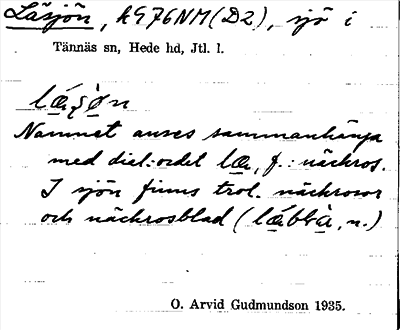 Läsjön, AG76NM(D2), sjö i
Tännäs sn, Hede hd, Jtl. l.
lǽʂø̀n
Namnet anses sammanhänga
med dial.-ordet læ, f. : näckros.
I sjön finns trol. näckrosor
och näckrosblad (lǽbbà, n.)
O. Arvid Gudmundson 1935.